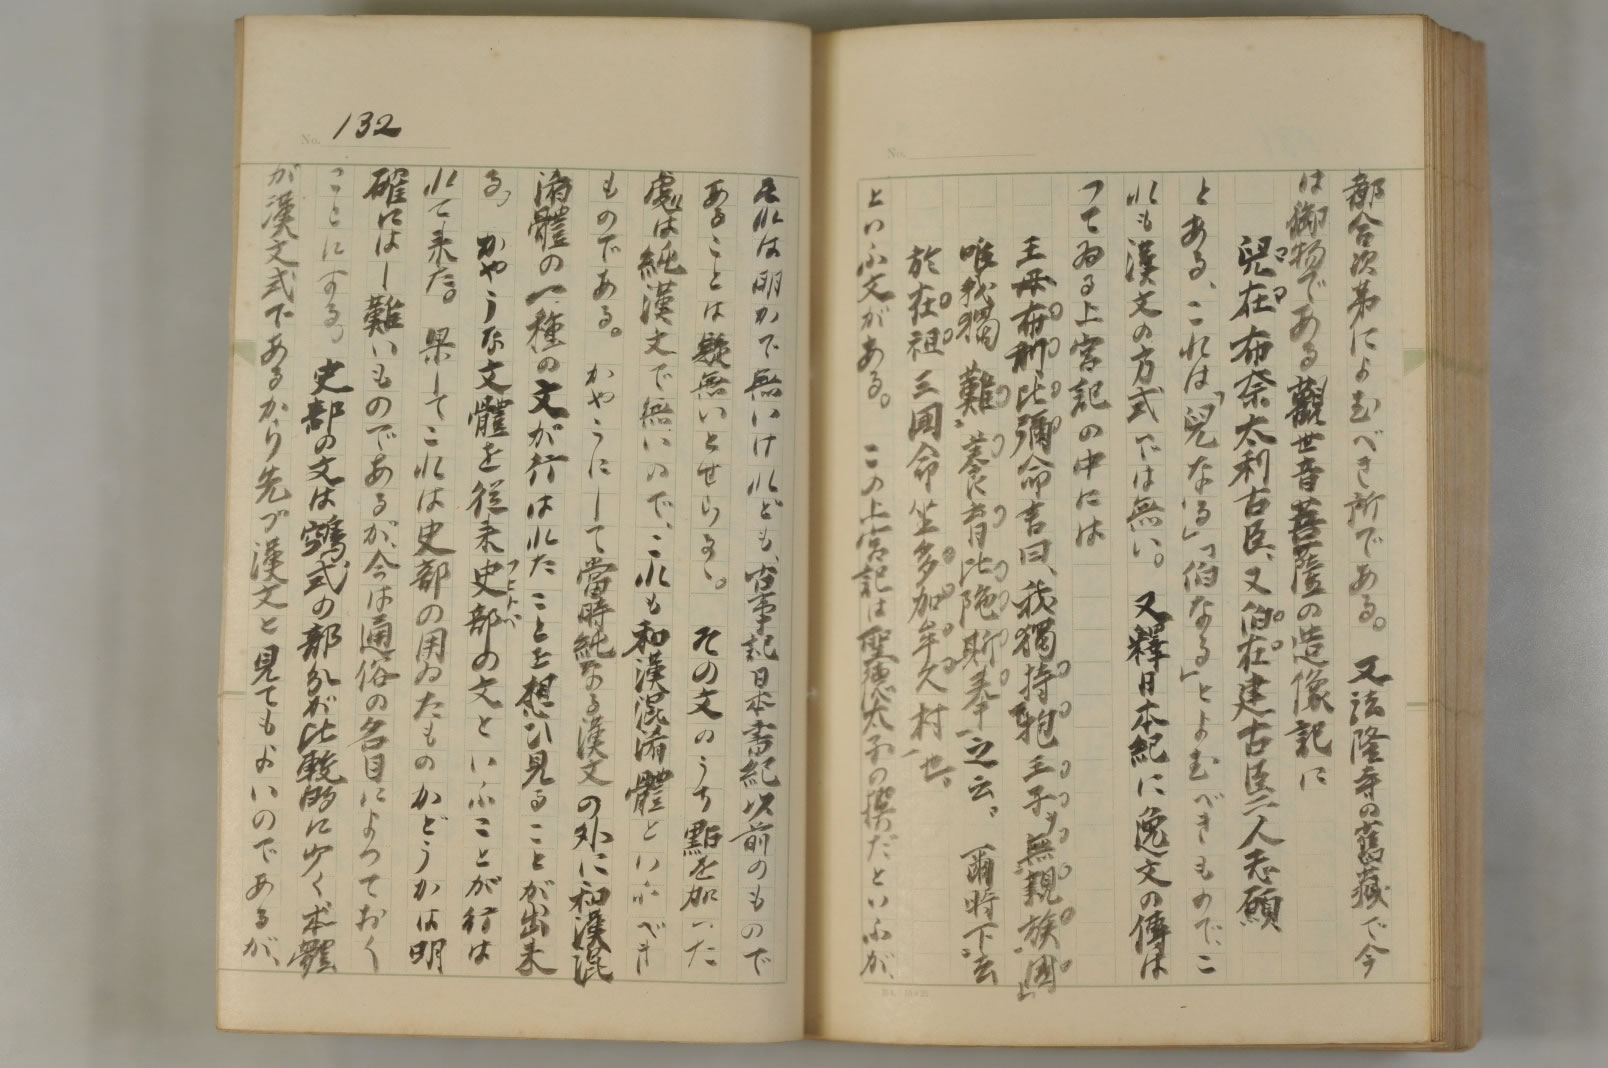 都合次第によむべき所である。又法隆寺の舊藏で今
は御物である觀世音菩薩の造像記に
兒在布奈太利古臣、又伯在建古臣二人志願
とある、これは「兒なる」「伯なる」とよむべきもので、こ
れも漢文の方式では無い。又釋日本紀に逸文の傳は
つてゐる上宮記の中には
王母布利比彌命言曰、我獨持抱王子無親族國
唯我獨難養育比陁斯奉之云、爾時下去
於在祖三國命坐多加牟久村也、
といふ文がある。この上宮記は聖德太子の撰だといふが、
132
それは明かで無いけれども、古事記日本書紀以前のもので
あることは疑無いとせらる。その文のうち點を加へた
處は純漢文で無いので、これも和漢混淆體といふべき
ものである。かやうにして當時純なる漢文の外に和漢混
淆體の一種の文が行はれたことを想ひ見ることが出来
る。かやうな文體を從来史部の文といふことが行は
フヒトベ
れて来た。果してこれは史部の用ゐたものかどうかは明
確にはし難いものであるが、今は通俗の名目によつておく
ことにする。史部の文は變式の部分が比較的に少く本體
が漢文式であるから先づ漢文と見てもよいのであるが、